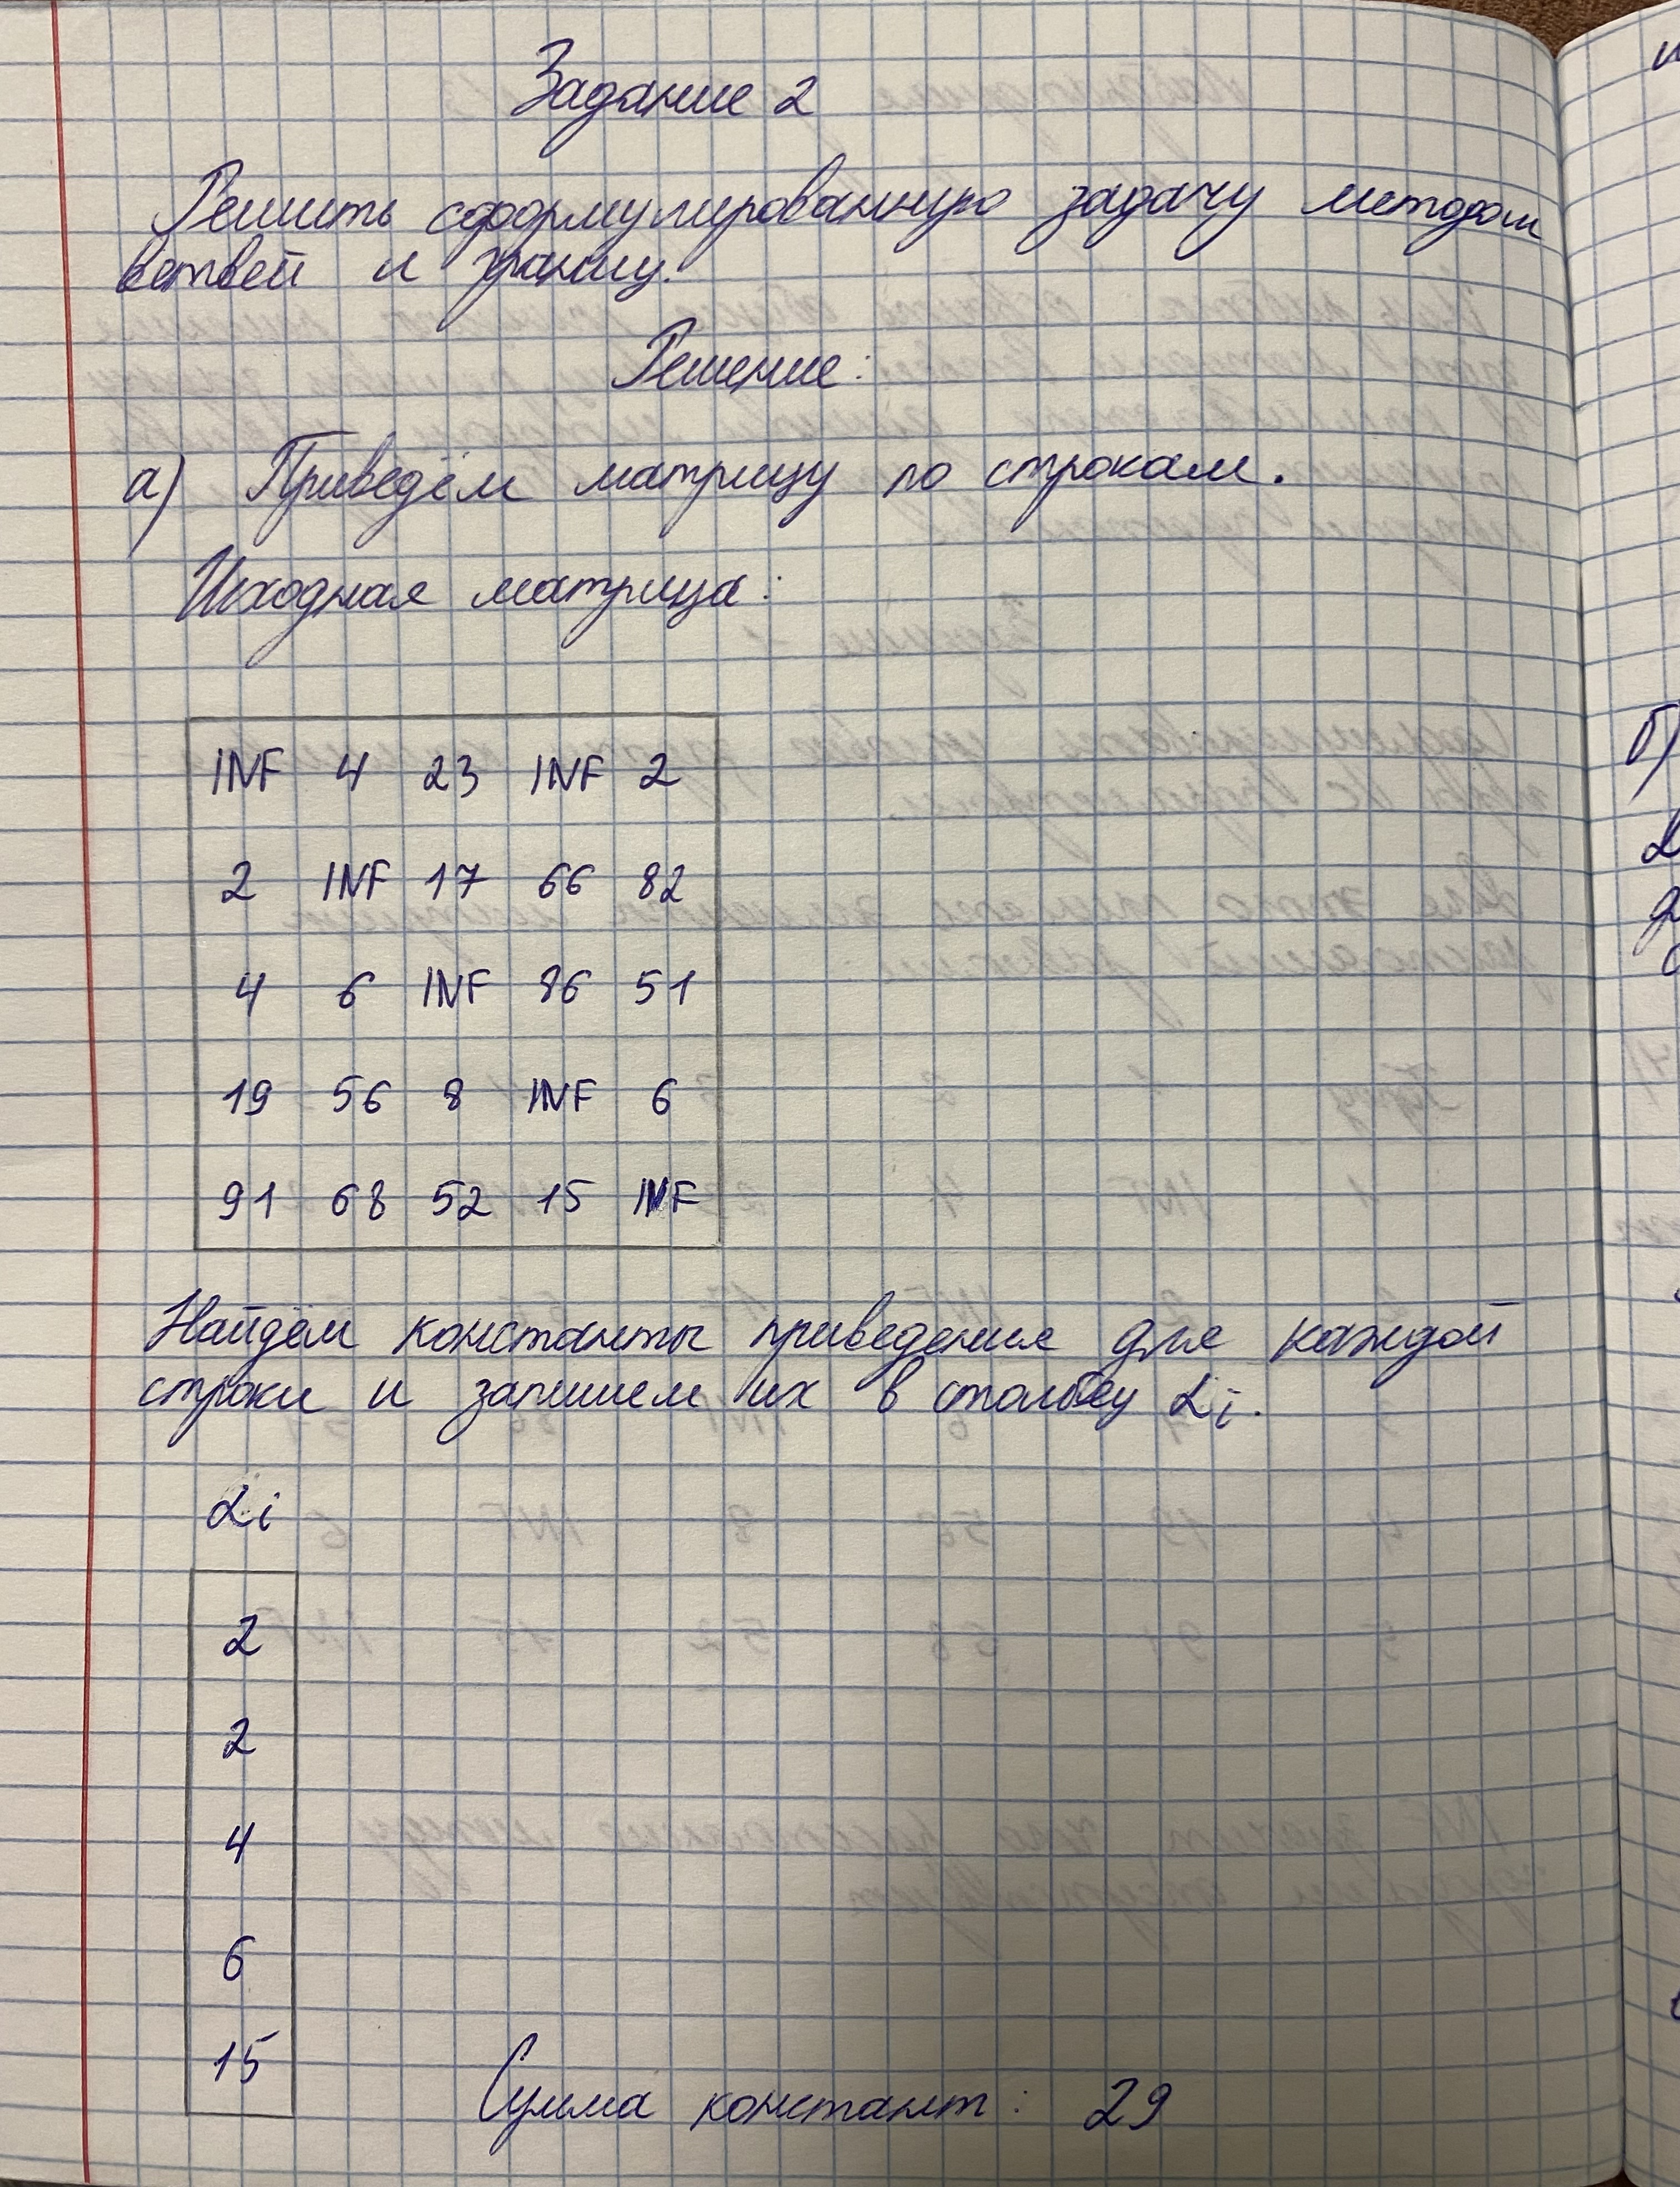 Задание 2
Решить сформулированную задачу методом
ветвей и границ.
Решение:
а) Приведём матрицу по строкам.
Исходная матрица:
INF 4 23 INF 2
2 INF 17 66 82
4 6 INF 86 51
19 56 8 INF 6
91 68 52 15 INF
Найдём константы приведения для каждой
строки и запишем их в столбец αi.
αi
2
2
4
6
15
Сумма констант: 29
б)